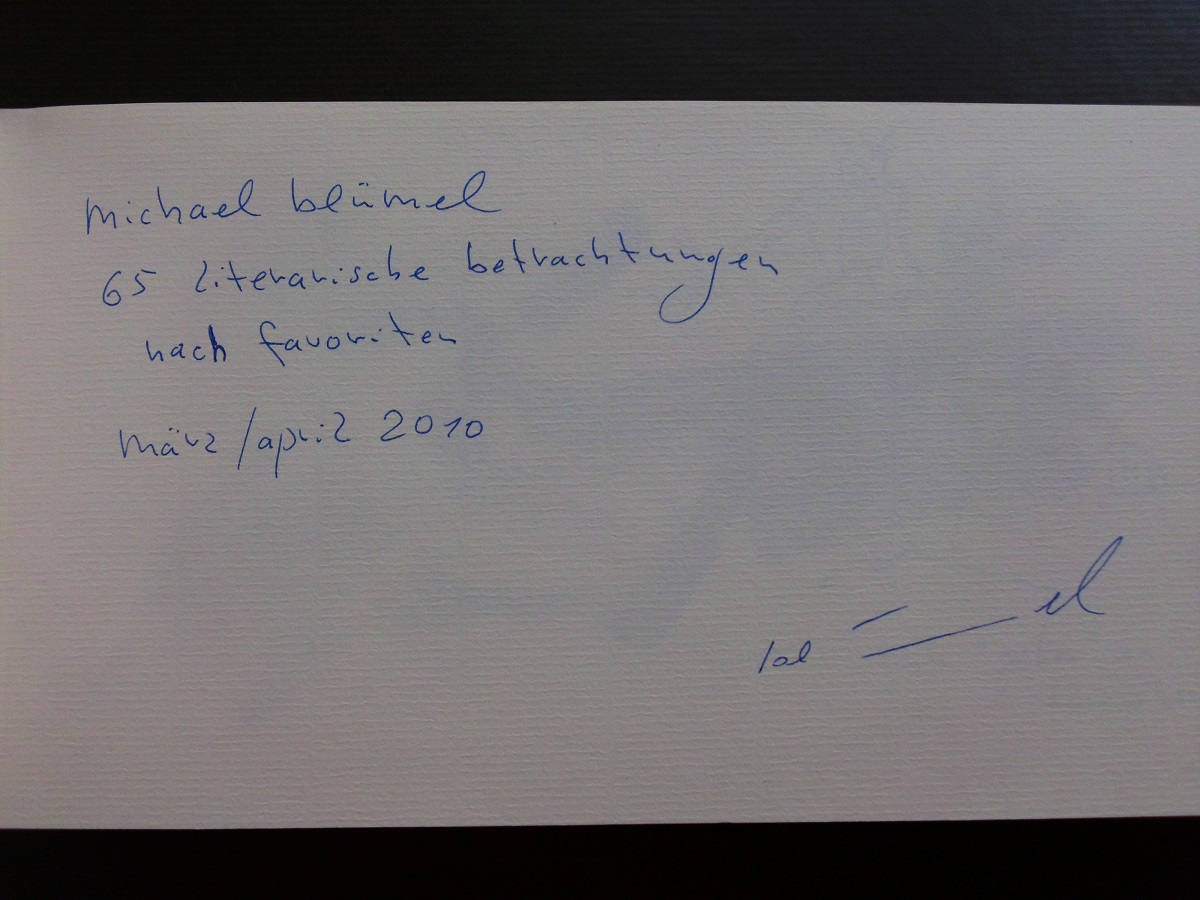 michael blümel
65 literarische betrachtungen
nach favoriten
märz/april 2010